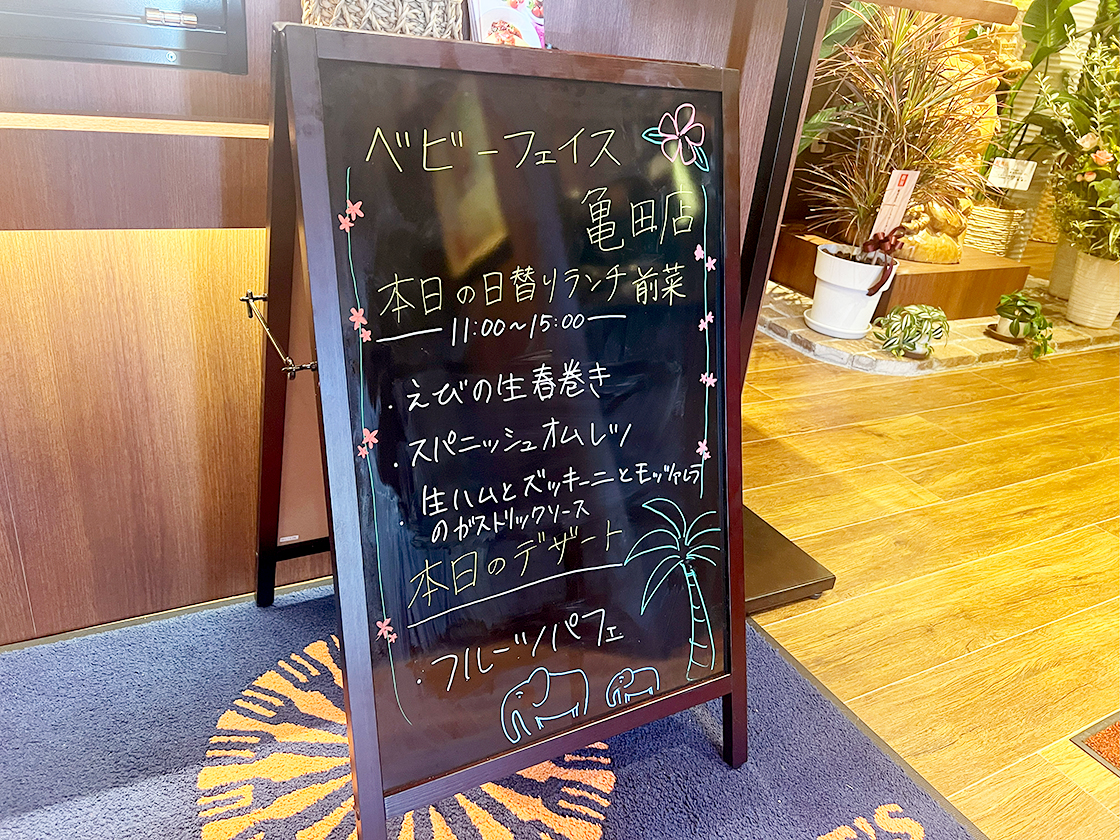 ベビーフェイス
亀田店
本日の日替りランチ前菜
11:00〜15:00
・えびの生春巻き
・スパニッシュオムレツ
・生ハムとズッキーニとモッツァレラ
のガストリックソース
本日のデザート
・フルーツパフェ
'S